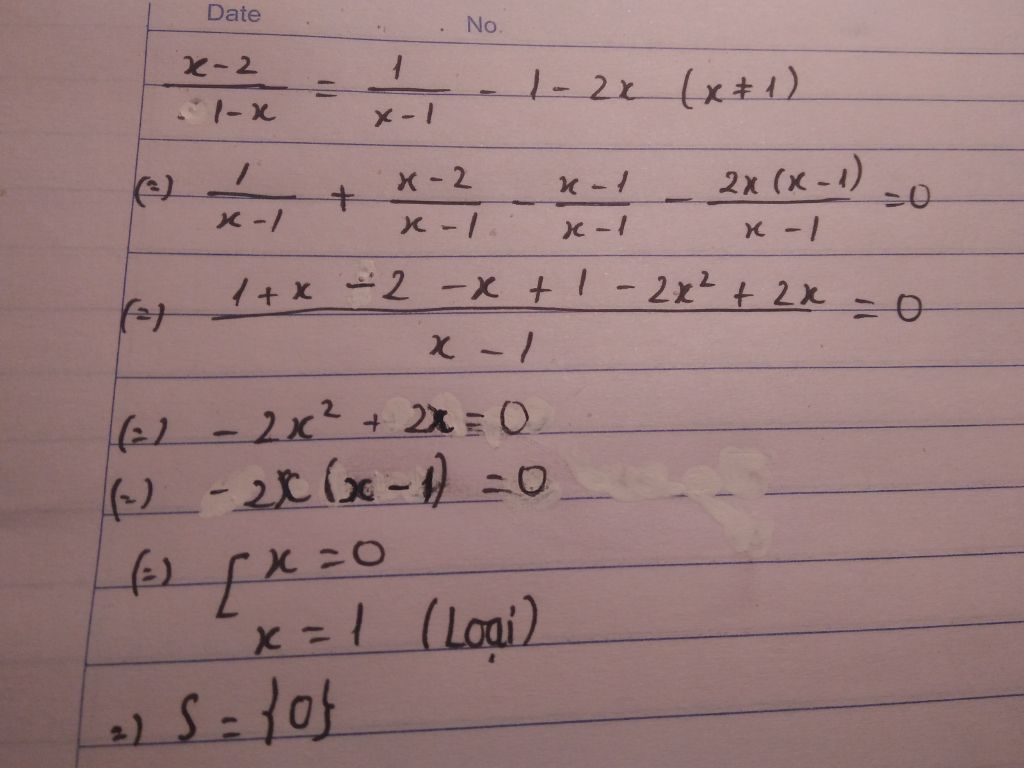 Date No.
x-2/1-x = 1/x-1 - 1 - 2x (x ≠ 1)
(=) 1/x-1 + x-2/x-1 - x-1/x-1 - 2x(x-1)/x-1 = 0
(=) 1+x-2-x+1-2x²+2x/x-1 = 0
(=) -2x² + 2x = 0
(=) -2x(x-1) = 0
(=) [ x = 0
x = 1 (Loại)
=) S = {0}